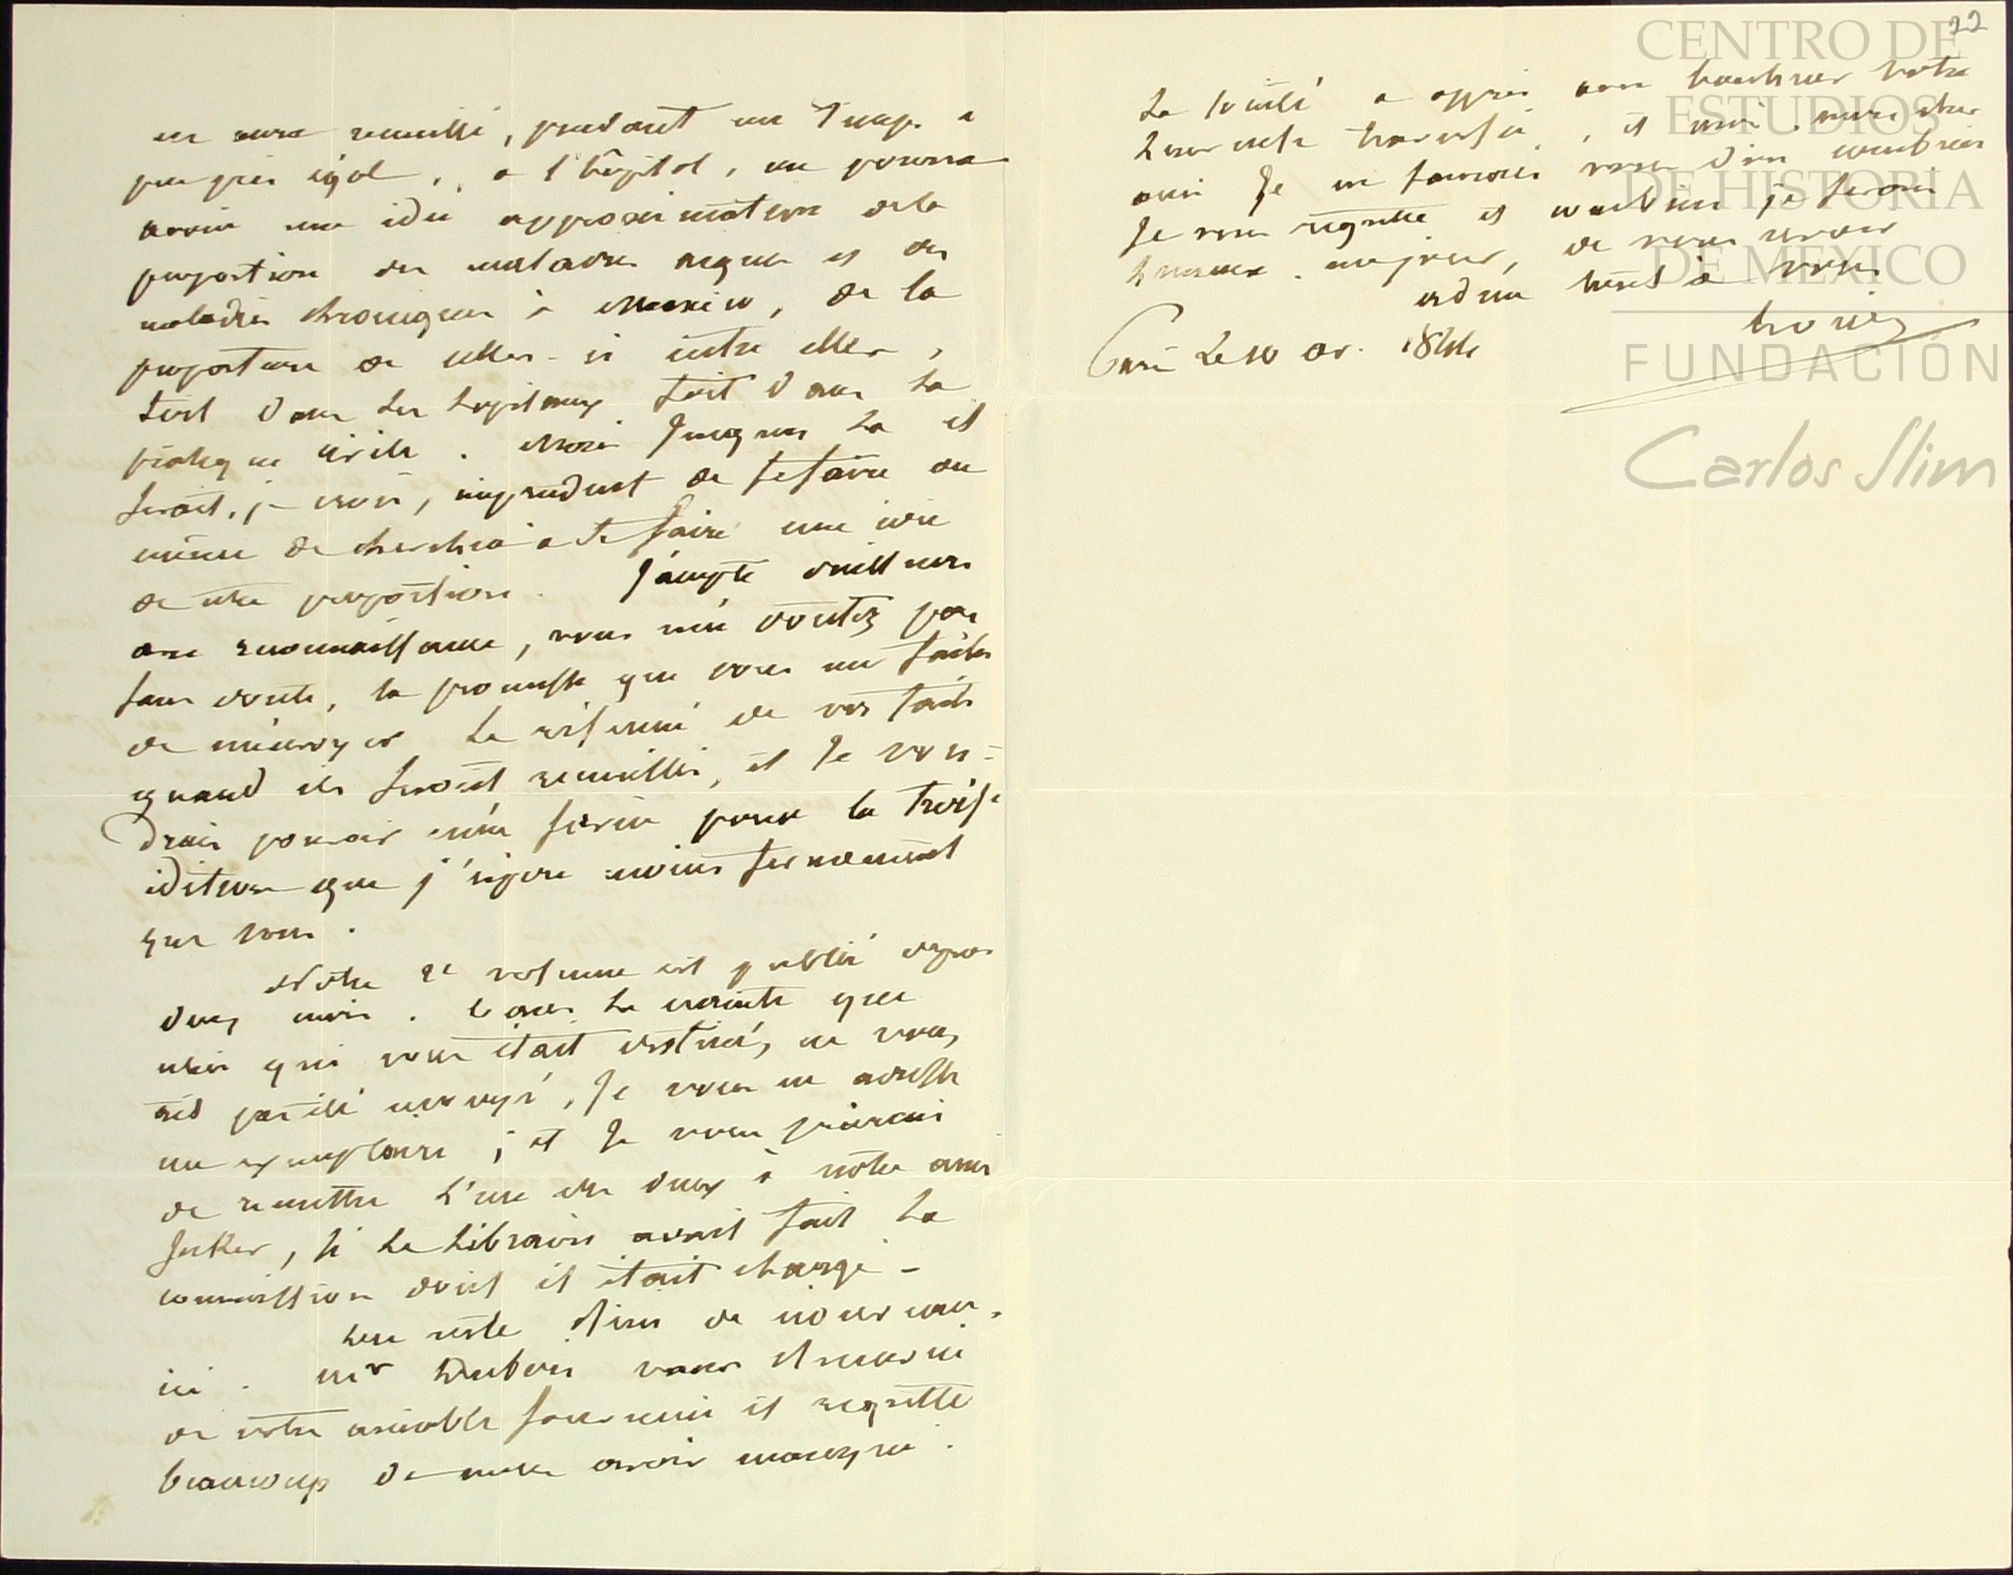 en aura recueilli, pendant un temps à
peu près égal, à l'hôpital, on pourra
avoir une idée approximative de la
proportion des maladies aigues et des
maladies chroniques à Mexico, de la
proportion de celles-ci entre elles,
soit dans les hopitaux soit dans la
pratique civile. Mais jusques là il
serait, je crois, imprudent de se faire ou
même de chercher à se faire une idée
de cette proportion. J'accepte d'ailleurs
avec reconnaissance, vous n'en doutez pas
sans doute, la promesse que vous me faites
de m'envoyer le résumé de vos faits
quand ils seront recueillis, et je vou-
drais pouvoir m'en servir pour la trois.e
édition que j'espère moins fermement
que vous.
Notre 2e volume est publié depuis
deux mois. Dans la crainte que
celui qui vous était destiné, ne vous
ait pas été envoyé, je vous en adresse
un exemplaire; et je vous prierais
de remettre l'un des deux à notre ami
Jecker, si le libraire avait fait la
commission dont il était chargé -
Du reste rien de nouveau
ici. Mr Dubois vous remercie
de votre aimable souvenir et regrette
beaucoup de vous avoir manqué.
22
La société a appris avec bonheur votre
heureuse traversée, et moi, mon cher
ami je ne saurais vous dire combien
je vous regrette et combien je serais
heureux, un jour, de vous revoir
tout à vous
Louis
Paris le 10 av. 1844
CENTRO DE
ESTUDIOS
DE HISTORIA
DE MEXICO
FUNDACIÓN
Carlos Slim